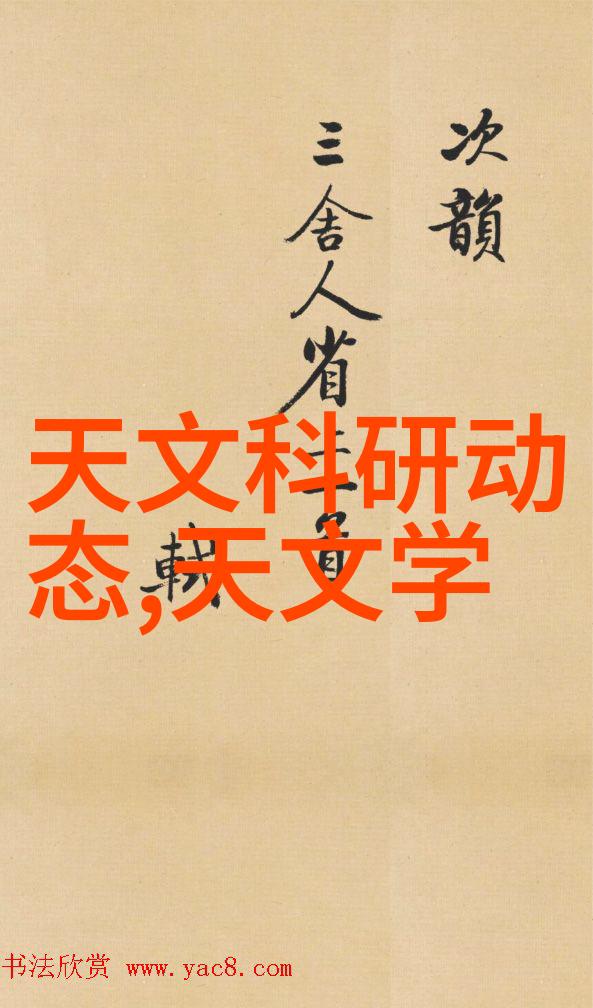 次韻
三舍人省上一首
軾
天文科研动
态,天文学
书法欣赏 www.yac8.com